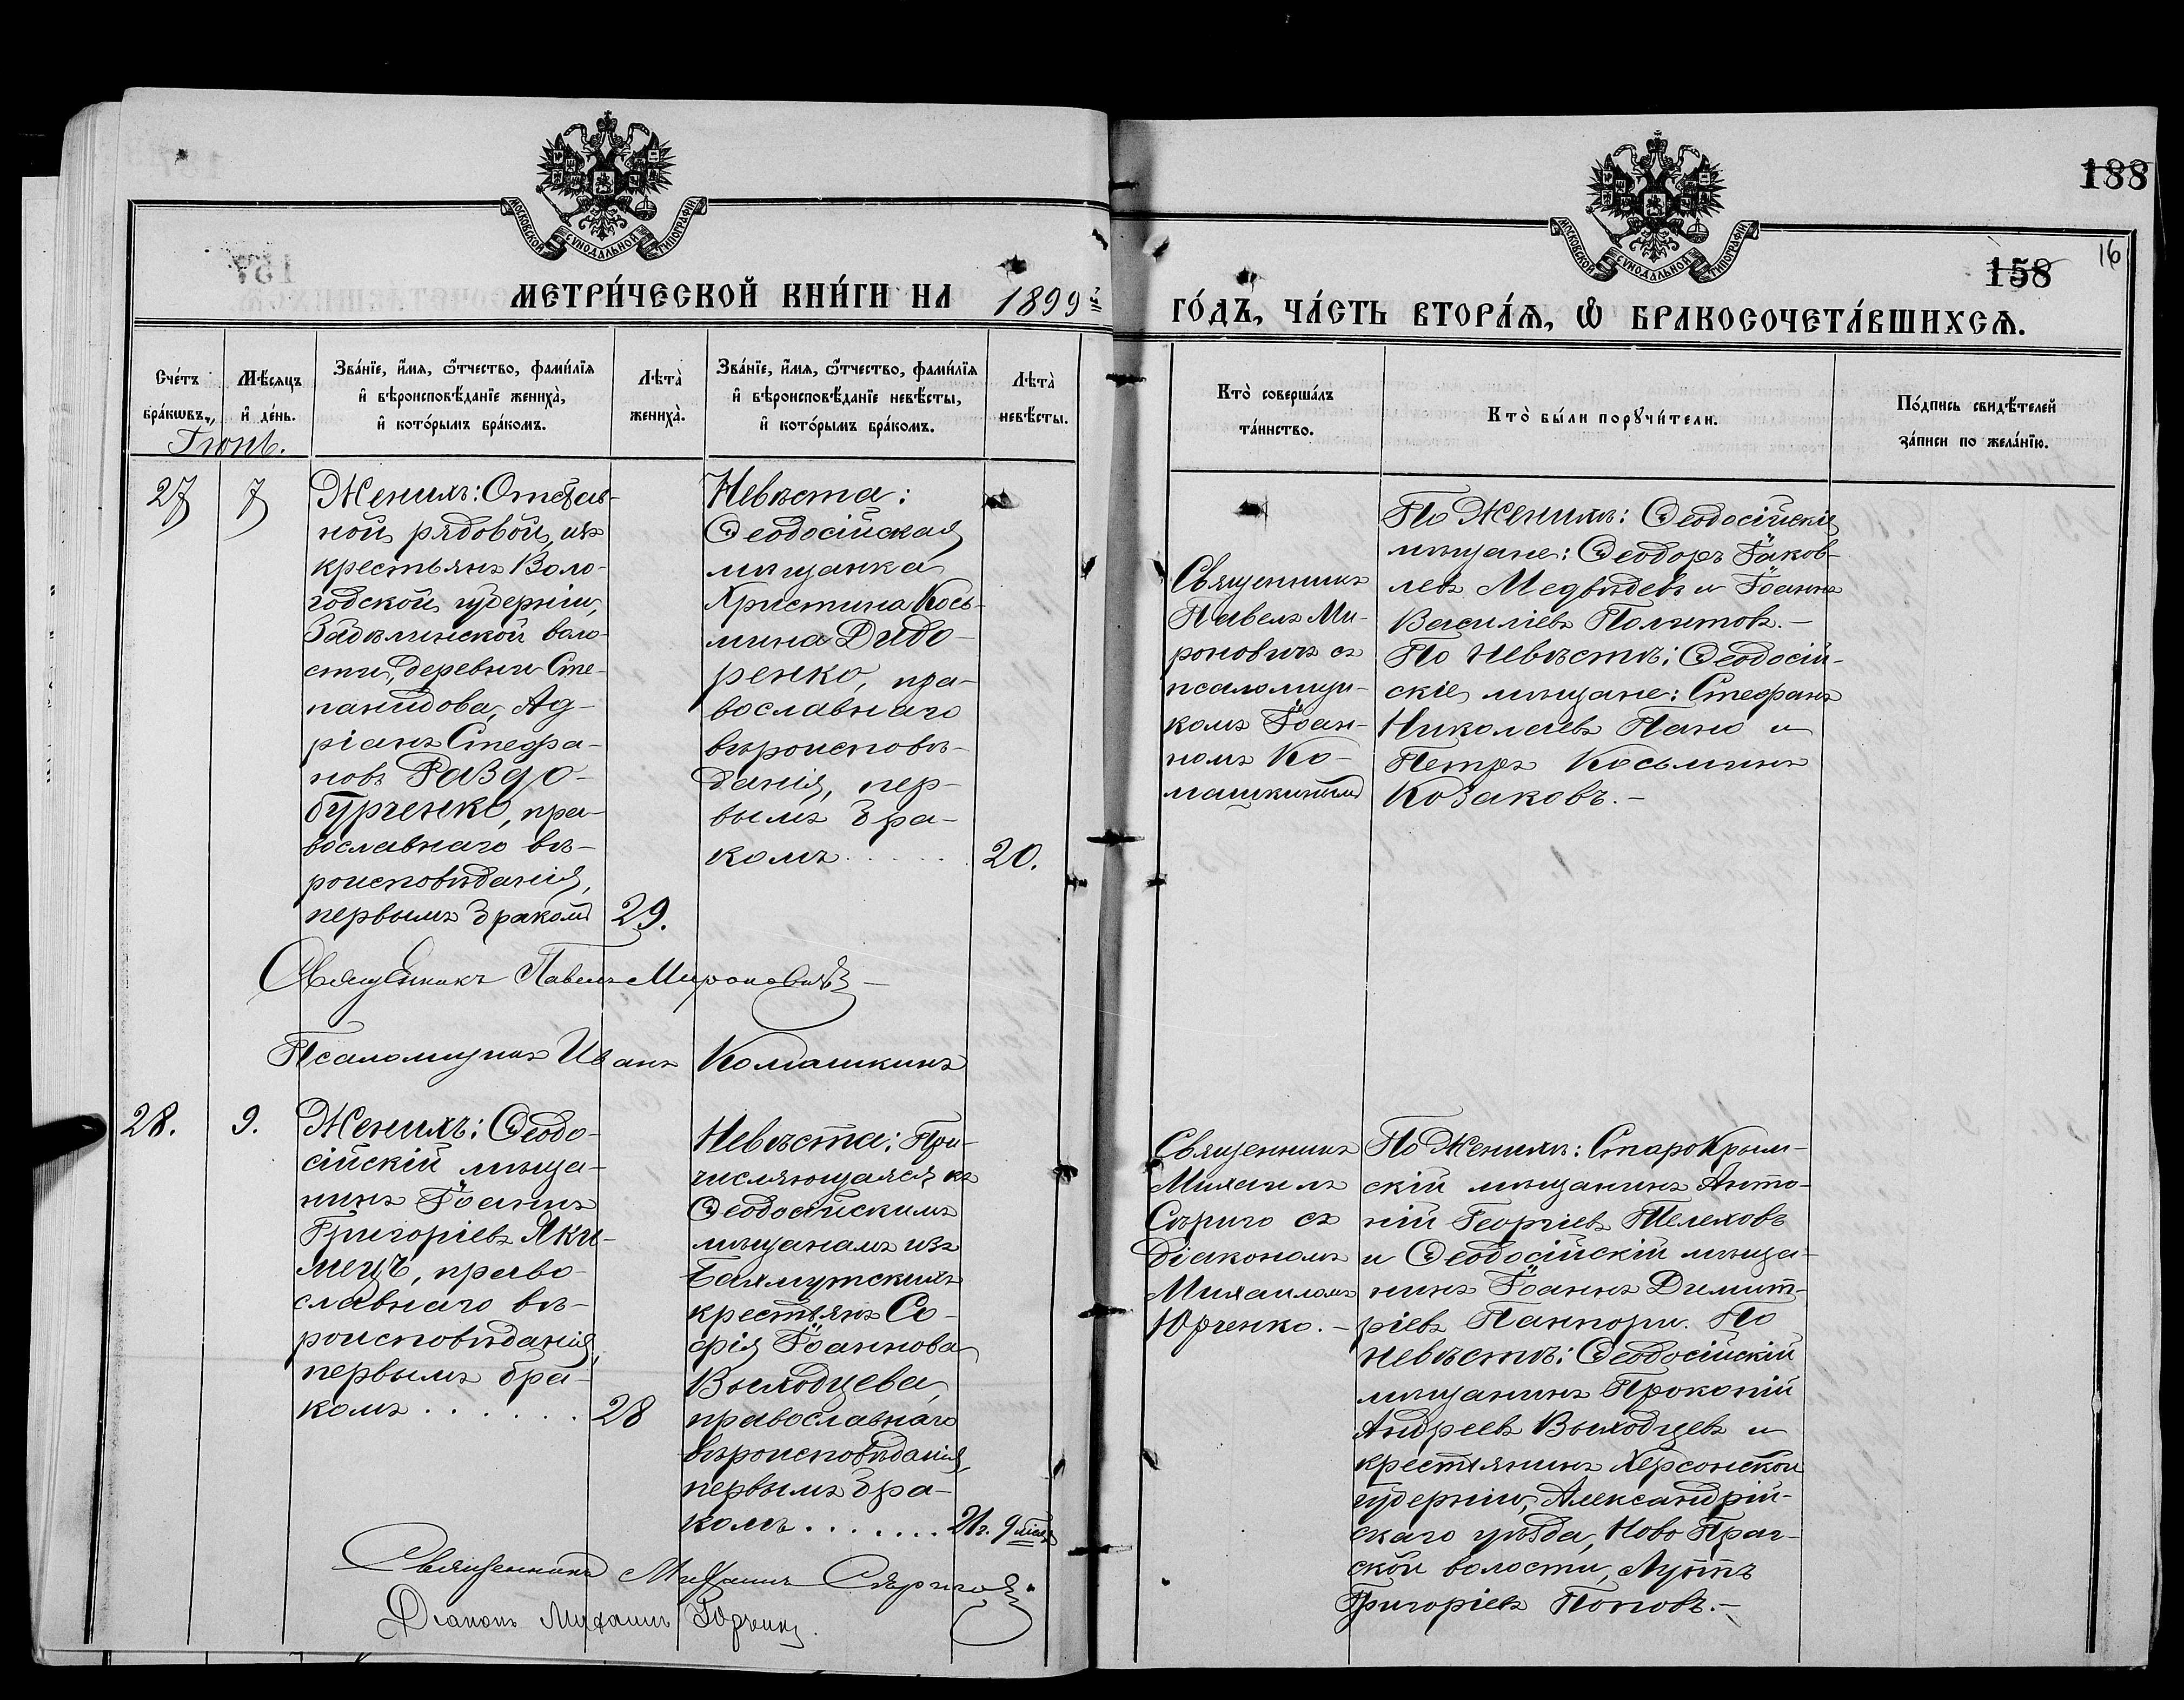 188
16
158
МОСКОВСКОЙ СѴНОДАЛЬНОЙ ТИПОГРАФІИ
МОСКОВСКОЙ СѴНОДАЛЬНОЙ ТИПОГРАФІИ
МЕТРИ́ЧЕСКОЙ КНИ́ГИ НА 1899й
ГО́ДЪ, ЧА́СТЬ ВТОРА́Ѧ, Ѽ БРАКОСОЧЕТА́ВШИХСѦ.
Сче́тъ бра́кѡвъ.
Мѣ́сяцъ и҆ де́нь.
Зва́нїе, и҆́мя, ѻ҆́тчество, фами́лїя
и҆ вѣроисповѣ́данїе жениха̀,
и҆ кото́рымъ бра́комъ.
Лѣта̀ жениха̀.
Зва́нїе, и҆́мя, ѻ҆́тчество, фами́лїя
и҆ вѣроисповѣ́данїе невѣ́сты,
и҆ кото́рымъ бра́комъ.
Лѣта̀ невѣ́сты.
Кто̀ соверша́лъ та́инство.
Кто̀ бы́ли порꙋчи́тели.
По́дпись свидѣ́телей за́писи по жела́нїю.
Іюнь.
27
7
Женихъ: Отстав-
ной рядовой, изъ
крестьянъ Воло-
годской губерніи,
Задѣлинской воло-
сти, деревни Сте-
панидова, Ад-
ріанъ Стефа-
новъ Раздо-
бурченко, пра-
вославнаго вѣ-
роисповѣданія,
первымъ бракомъ
29.
Невѣста:
Ѳеодосійская
мѣщанка
Христина Кось-
мина Дидо-
ренко, пра-
вославнаго
вѣроисповѣ-
данія, пер-
вымъ бра-
комъ . . . . .
20.
Священникъ
Павелъ Ми-
роновичъ съ
псаломщи-
комъ Іоан-
номъ Ко-
машкинымъ
По Женихѣ: Ѳеодосійскіе
мѣщане: Ѳеодоръ Іаков-
левъ Медвѣдевъ и Іоаннъ
Василіевъ Полытовъ. –
По Невѣстѣ: Ѳеодосій-
скіе мѣщане: Стефанъ
Николаевъ Пано и
Петръ Косьминъ
Козаковъ. –
Священникъ Павелъ Мироновичъ
Псаломщикъ Иванъ Комашкинъ
28.
9.
Женихъ: Ѳеодо-
сійскій мѣща-
нинъ Іоаннъ
Григоріевъ Яки-
мецъ, право-
славнаго вѣ-
роисповѣданія,
первымъ бра-
комъ . . . . . .
28
Невѣста: При-
числяющаяся къ
Ѳеодосійскимъ
мѣщанамъ изъ
Бахмутскихъ
крестьянъ Со-
фія Іоаннова
Выходцева,
православнаго
вѣроисповѣданія,
первымъ бра-
комъ . . . . . . .
21 г. 9 мѣсяц
Священникъ
Михаилъ
Сѣриго съ
діакономъ
Михаиломъ
Юрченко. –
По Женихѣ: СтароКрым-
скій мѣщанинъ Анто-
ній Георгіевъ Шелеховъ
и Ѳеодосійскій мѣща-
нинъ Іоаннъ Димит-
ріевъ Паннори. По
Невѣстѣ: Ѳеодосійскій
мѣщанинъ Прокопій
Андреевъ Выходцевъ и
крестьянинъ Херсонской
губерніи, Александрій-
скаго уѣзда, Ново Праг-
ской волости, Луппъ
Григоріевъ Поповъ. –
Священникъ Михаилъ Сѣриго
Діаконъ Михаилъ Юрченко.